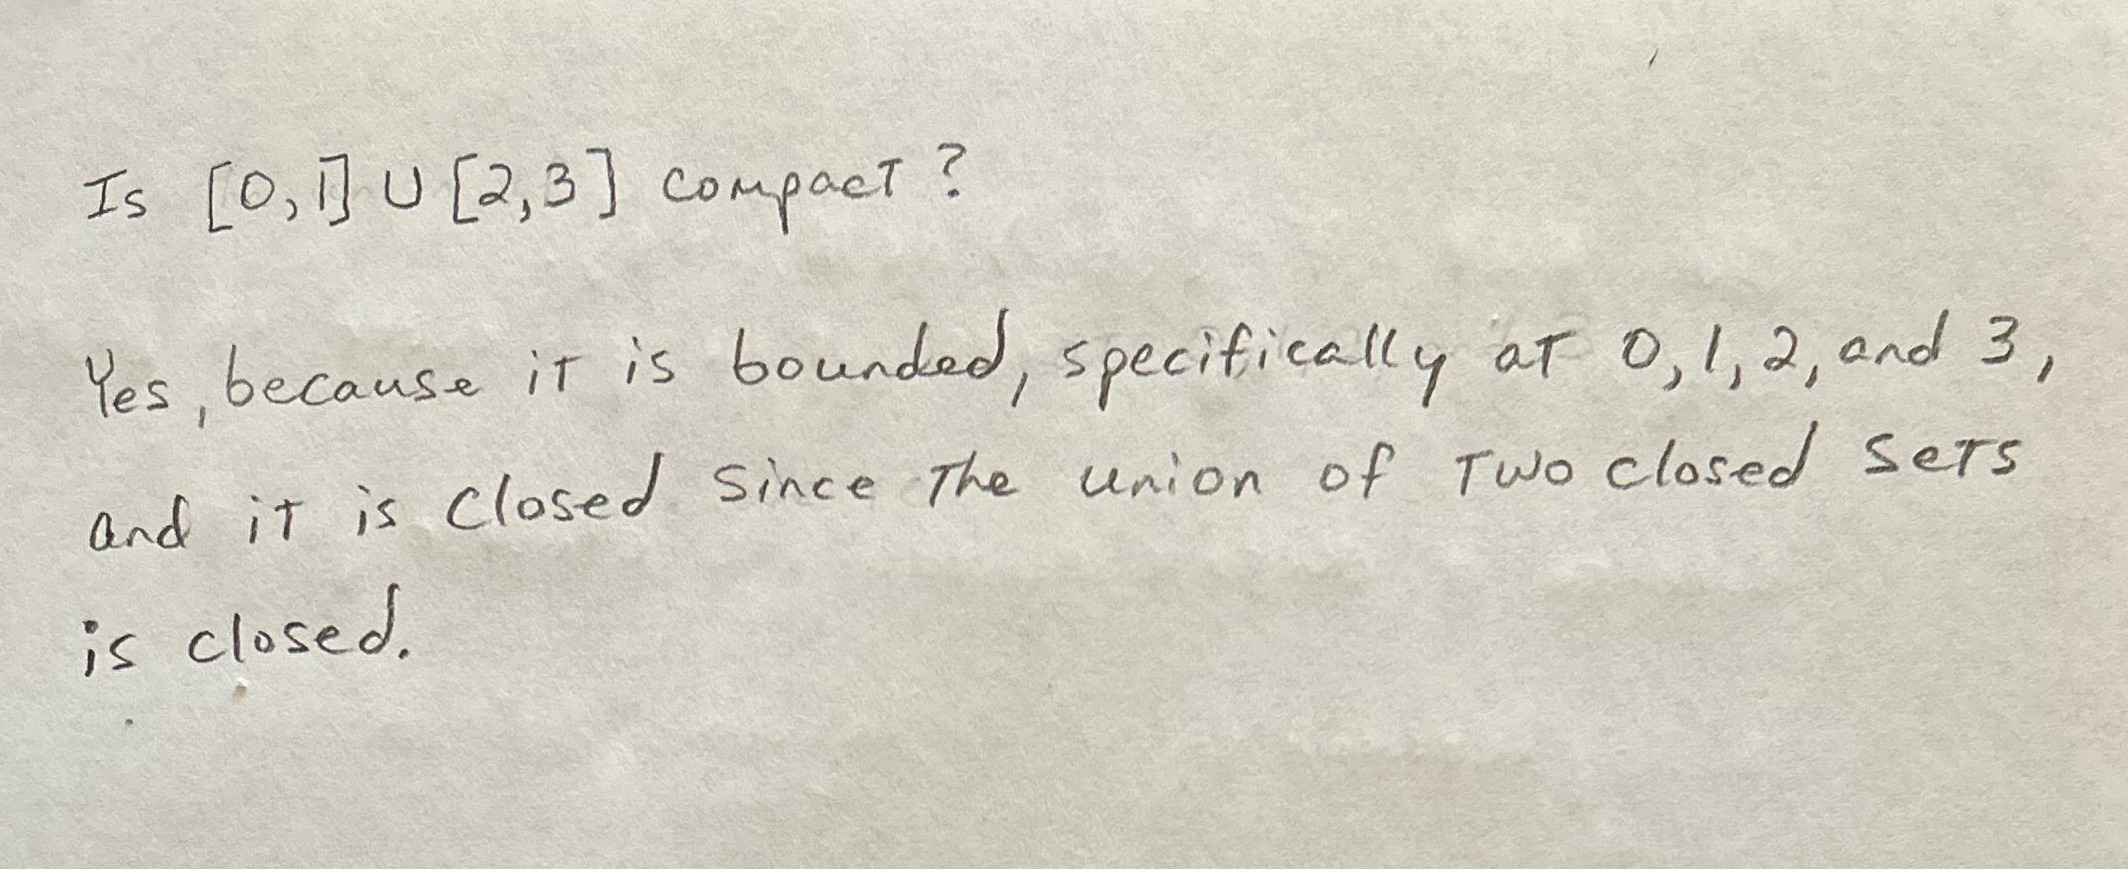 Is [0,1] ∪ [2,3] compact?
Yes, because it is bounded, specifically at 0, 1, 2, and 3,
and it is closed since the union of two closed sets
is closed.